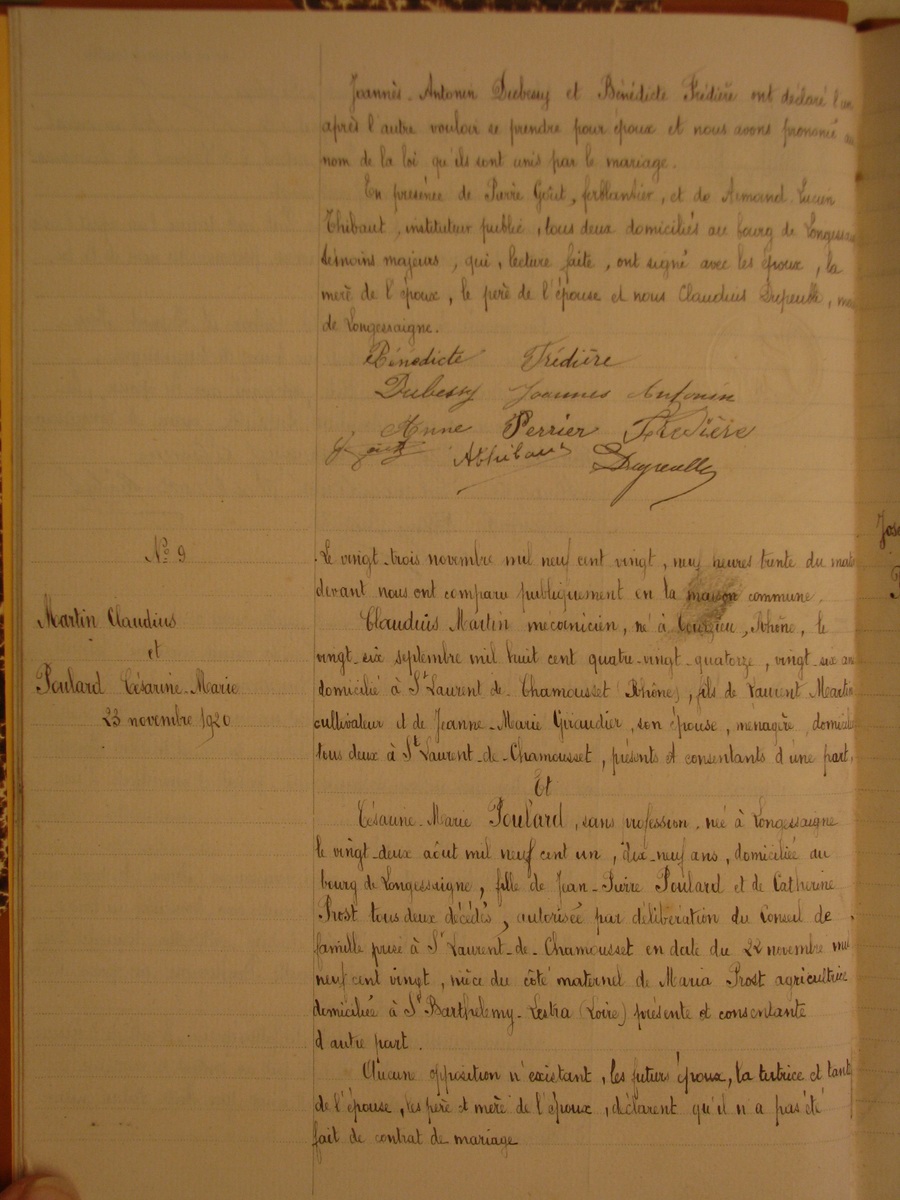 Joannès-Antonin Dubessy et Bénédicte Frédière ont déclaré l'un
après l'autre vouloir se prendre pour époux et nous avons prononcé au
nom de la loi qu'ils sont unis par le mariage.
En présence de Pierre Goût, ferblantier, et de Armand-Lucien
Thibaut, instituteur public, tous deux domiciliés au bourg de Longessaigne
témoins majeurs, qui, lecture faite, ont signé avec les époux, la
mère de l'époux, le père de l'épouse et nous Claudius Dupeuble, maire
de Longessaigne.
Bénédicte Frédière
Dubessy Joannes Antonin
Anne Perrier Frédière
AThibaut
N° 9
Martin Claudius
et
Poulard Césarine-Marie
23 novembre 1920
Le vingt-trois novembre mil neuf cent vingt, neuf heures trente du matin
devant nous ont comparu publiquement en la maison commune.
Claudius Martin mécanicien, né à Courzieu, Rhône, le
vingt-six septembre mil huit cent quatre-vingt-quatorze, vingt-six ans
domicilié à St Laurent-de-Chamousset (Rhône), fils de Laurent Martin
cultivateur et de Jeanne-Marie Giraudier, son épouse, ménagère, domiciliés
tous deux à St Laurent-de-Chamousset, présents et consentants d'une part.
Et
Césarine-Marie Poulard, sans profession, née à Longessaigne
le vingt-deux août mil neuf cent un, dix-neuf ans, domiciliée au
bourg de Longessaigne, fille de Jean-Pierre Poulard et de Catherine
Prost tous deux décédés, autorisée par délibération du Conseil de
famille prise à St Laurent-de-Chamousset en date du 22 novembre mil
neuf cent vingt, nièce du côté maternel de Maria Prost agricultrice
domiciliée à St Barthélemy-Lestra (Loire) présente et consentante
d'autre part.
Aucune opposition n'existant, les futurs époux, la tutrice et tante
de l'épouse, les père et mère de l'époux, déclarent qu'il n'a pas été
fait de contrat de mariage